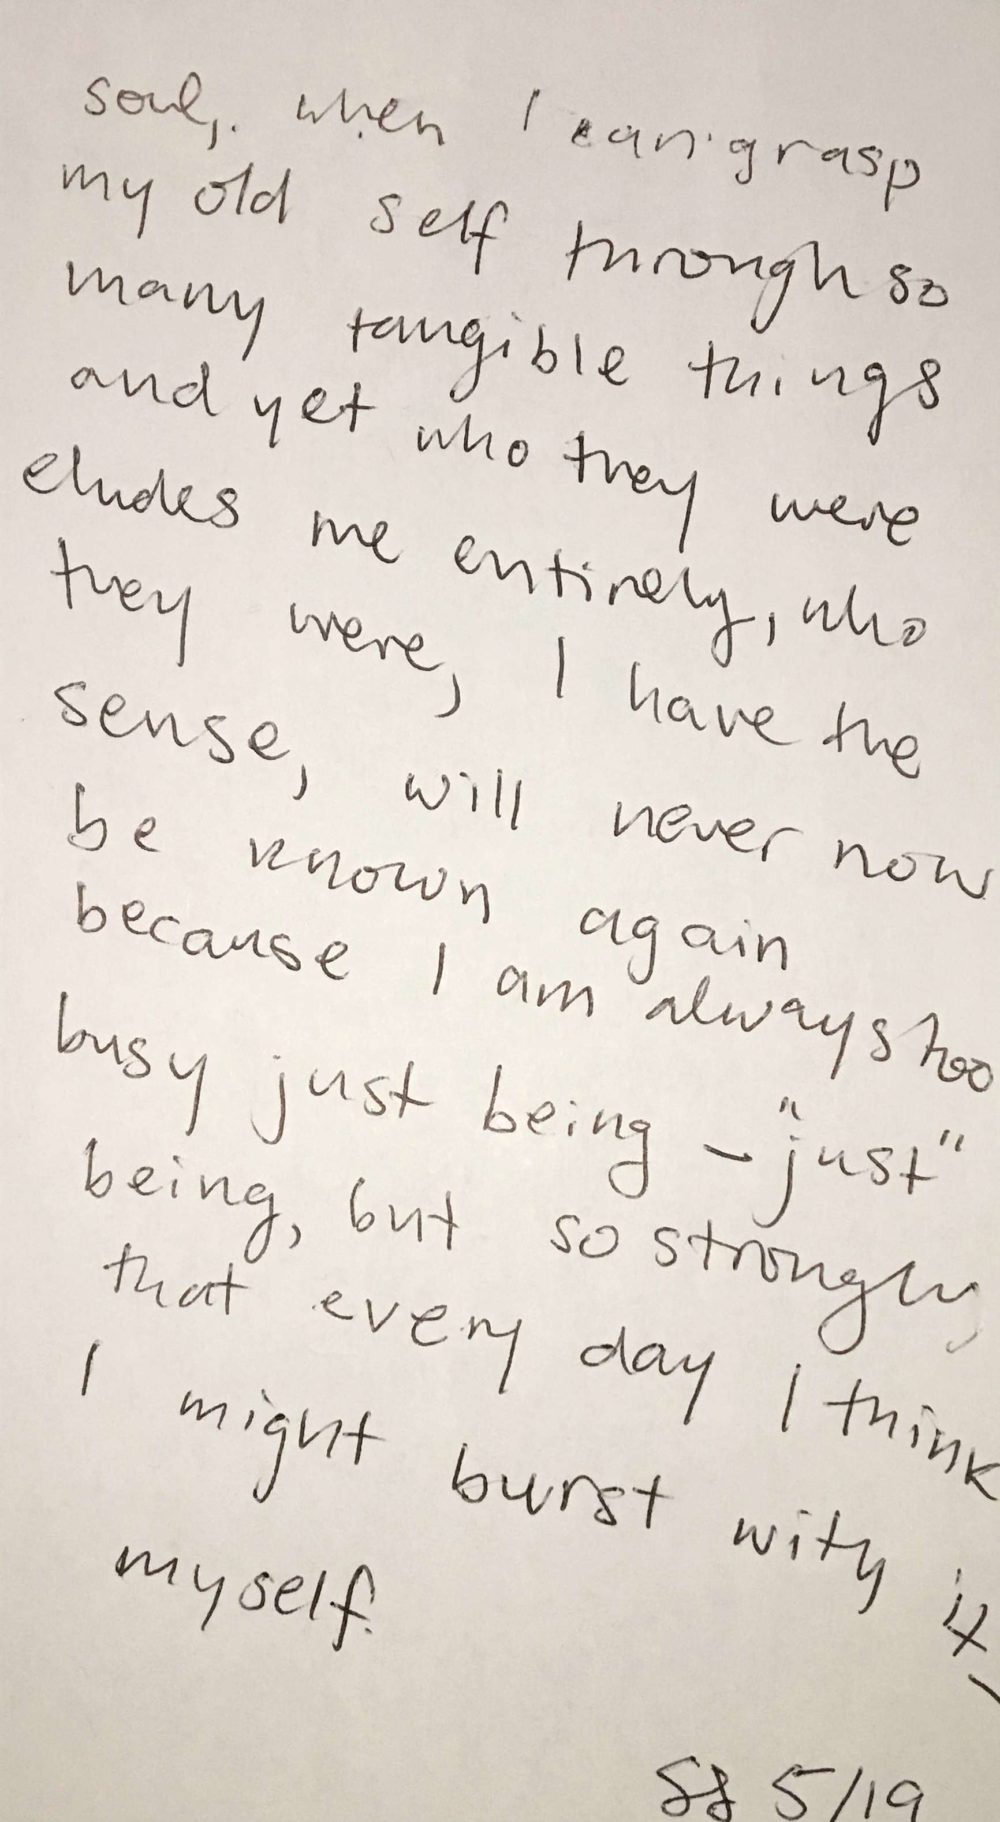 soul, when I can grasp
my old self through so
many tangible things
and yet who they were
eludes me entirely, who
they were, I have the
sense, will never now
be known again
because I am always too
busy just being – "just"
being, but so strongly,
that every day I think
I might burst with it,
myself.
SS 5/19